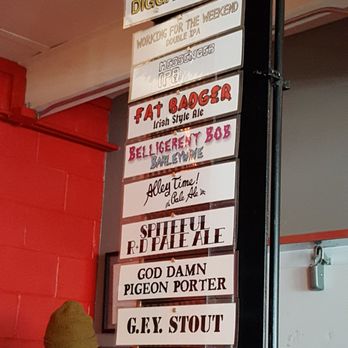 WORKING FOR THE WEEKEND
DOUBLE IPA
MESSENGER
IPA
FAT BADGER
Irish Style Ale
BELLIGERENT BOB
BARLEYWINE
Alley Time!
Pale Ale
SPITEFUL
R-D PALE ALE
GOD DAMN
PIGEON PORTER
G.F.Y. STOUT